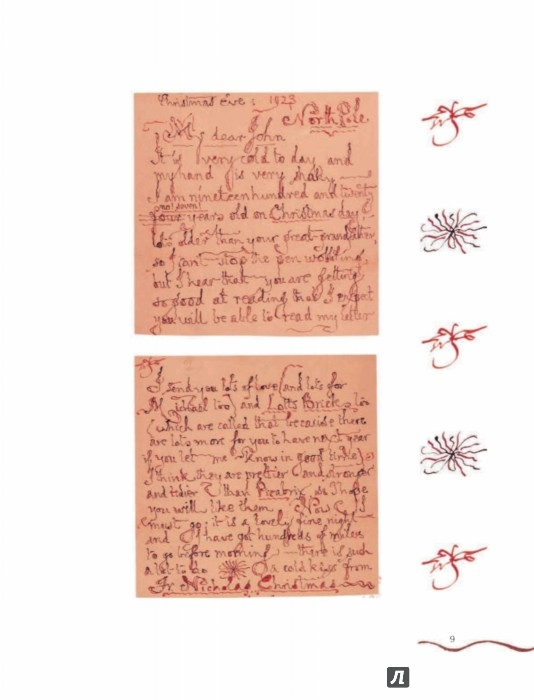 Christmas eve : 1923
North Pole
My dear John
It is very cold to day and
my hand is very shaky —
I am nineteen hundred and twenty
four years old on Christmas day
lots older than your great-grandfather,
so I can't stop the pen wobbling,
but I hear that you are getting
so good at reading that I expect
you will be able to read my letter
I send you lots of love (and lots for
Michael too) and Lotts Bricks too
(which are called that because there
are lots more for you to have next year
if you let me know in good time)
I think they are prettier and stronger
and tidier than Picabrix. So I hope
you will like them. Now I
must go; it is a lovely fine night
and I have got hundreds of miles
to go before morning — there is such
a lot to do
a cold kiss from
Fr. Nicholas Christmas
9
Л